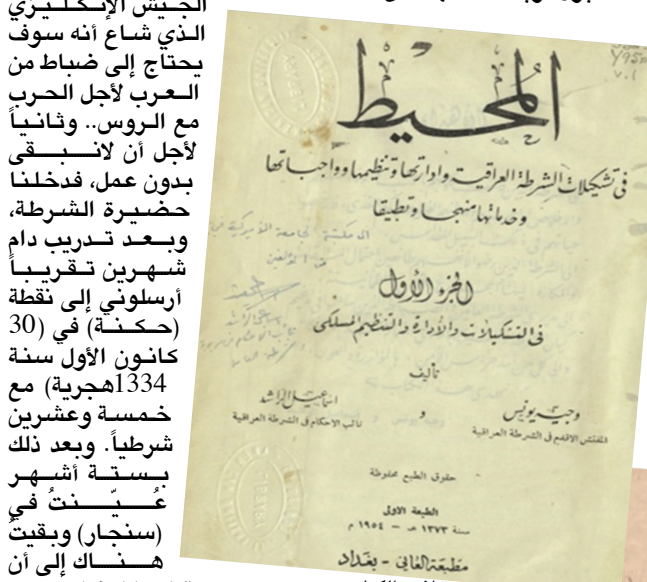 الجيش الإنكليزي
الذي شاع أنه سوف
يحتاج إلى ضباط من
العرب لأجل الحرب
مع الروس.. وثانياً
لأجل أن لانبقى
بدون عمل، فدخلنا
حضيرة الشرطة،
وبعد تدريب دام
شهرين تقريباً
أرسلوني إلى نقطة
(حكنة) في (30
كانون الأول سنة
1334هجرية) مع
خمسة وعشرين
شرطياً. وبعد ذلك
بستة أشهر
عُيّنتُ في
(سنجار) وبقيتُ
هناك إلى أن
المحيط
في تشكيلات الشرطة العراقية وادارتها وتنظيمها وواجباتها
وخدماتها منهجا وتطبيقا
الجزء الأول
في التشكيلات والأدارة والتنظيم المسلكي
تأليف
وجيه يونس
المفتش الاقدم في الشرطة العراقية
و
اسماعيل الراشد
نائب الاحكام في الشرطة العراقية
حقوق الطبع محفوظة
الطبعة الاولى
سنة ١٣٧٣ هـ - ١٩٥٤ م
مطبعة العاني - بغداد